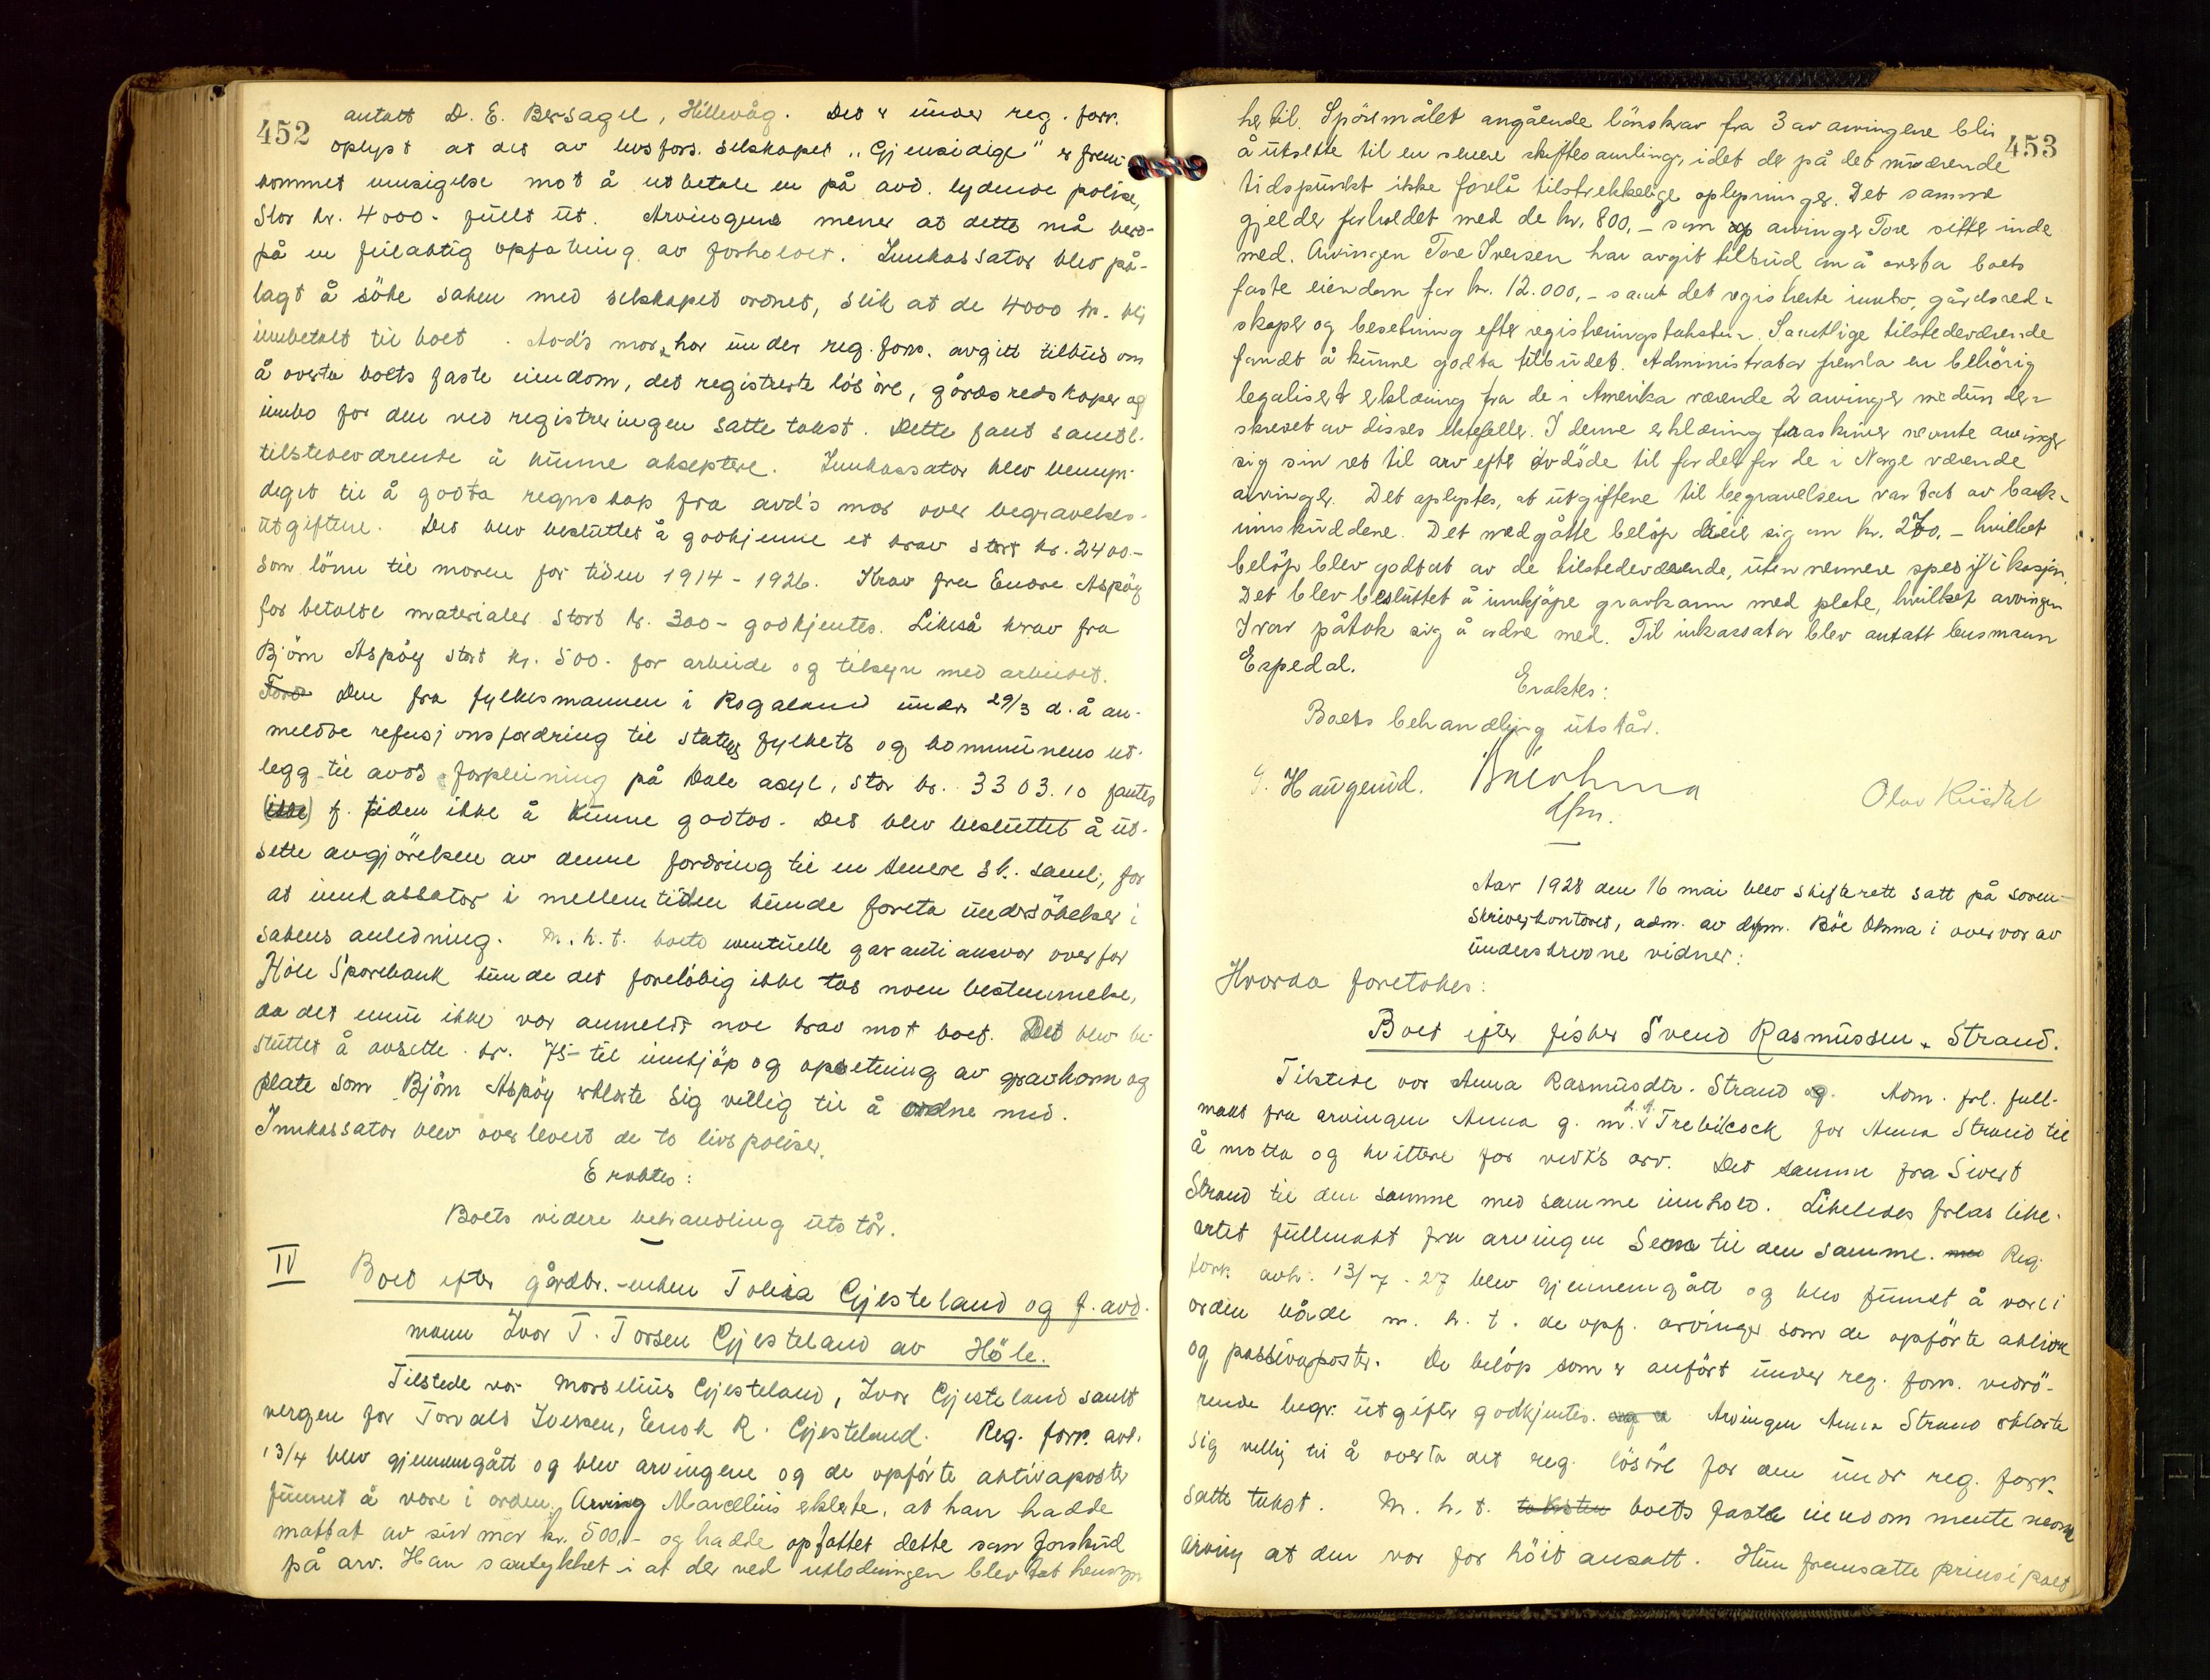 452
antatt D. E. Bersagel, Hillevåg. Det er under reg. forr.
oplyst at det av livsfors. selskapet "Gjensidige" er frem-
kommet innsigelse mot å utbetale en på avd. lydende polise,
stor kr. 4000.- fullt ut. Arvingene mener at dette må bero
på en feilaktig opfatning av forholdet. Innkassator blev på-
lagt å söke saken med selskapet ordnet, slik at de 4000 kr. blir
innbetalt til boet. Avd's mor har under reg. forr. avgitt tilbud om
å overta boets faste eiendom, det registrerte lösöre, gårdsredskaper og
innbo for den ved registreringen satte takst. Dette fant samtl.
tilstedeværende å kunne akseptere. Innkassator blev bemyn-
diget til å godta regnskap fra avd's mor over begravelses-
utgiftene. Det blev besluttet å godkjenne et krav stort kr. 2400-
som lönn til moren for tiden 1914 - 1926. Krav fra Endre Aspöy
for betalte materialer stort kr. 300- godkjentes. Likeså krav fra
Björn Aspöy stort kr. 500.- for arbeide og tilsyn med arbeidet.
Den fra fylkesmannen i Rogaland under 29/3 d.å an-
meldte refusjonsfordring til statens fylkets og kommunens ut-
legg til avds forpleining på Dale asyl, stor kr. 3303.10 fantes
(ikke) f. tiden ikke å kunne godtas. Det blev besluttet å ut-
sette avgjörelsen av denne fordring til en senere sk. saml., for
at innkassator i mellemtiden kunde foreta undersökelser i
sakens anledning. M. h. t. boets eventuelle garantiansvar overfor
Höle Sparebank kunde det forelöbig ikke tas noen bestemmelse,
da det ennu ikke var anmeldt noe krav mot boet. Det blev be-
sluttet å avsette kr. 75- til innkjöp og opsetning av gravkarm og
plate som Björn Aspöy erklærte sig villig til å ordne med.
Innkassator blev overlevert de to livspoliser.
Eraktes:
Boets videre behandling utstår.
IV Boet efter gårdbr.-enken Tolina Gjesteland og f. avd.
mann Ivar T. Torsen Gjesteland av Höle.
Tilstede var Marselius Gjesteland, Ivar Gjesteland samt
vergen for Torvald Iversen, Enok R. Gjesteland. Reg. forr. avh.
13/4 blev gjennemgått og blev arvingene og de opförte aktivaposter
funnet å være i orden. Arving Marcellius erklærte, at han hadde
mottat av sin mor kr. 500,- og hadde opfattet dette som forskud
på arv. Han samtykket i at der ved utlodningen blev tat hensyn
453
hertil. Spörsmålet angående lönskrav fra 3 av arvingene blir
å utsette til en senere skiftesamling, idet der på det nuværende
tidspunkt ikke forelå tilstrekkelige oplysninger. Det samme
gjelder forholdet med de kr. 800,- som arvinger Tore sitter inde
med. Arvingen Tore Iversen har avgit tilbud om å overta boets
faste eiendom for kr. 12.000,- samt det registrerte innbo, gårdsred-
skaper og besetning efter registreringstaksten. Samtlige tilstedeværende
fandt å kunne godta tilbudet. Administrator fremla en behörig
legalisert erklæring fra de i Amerika værende 2 arvinger medunder-
skrevet av disses ektefeller. I denne erklæring fraskriver nevnte arvinger
sig sin ret til arv efter avdöde til fordel for de i Norge værende
arvinger. Det oplystes, at utgiftene til begravelsen var tat av bank-
innskuddene. Det medgåtte belöp dreiet sig om kr. 270,- hvilket
belöp blev godtat av de tilstedeværende, uten nermere spesifikasjon.
Det blev besluttet å innkjöpe gravkarm med plate, hvilket arvingen
Ivar påtok sig å ordne med. Til inkassator blev antatt lensmann
Espedal.
Eraktes:
Boets behandling utstår.
G. Haugerud. Böe Ohma Olav Kiisdal
dfm.
Aar 1928 den 16 mai blev skifterett satt på soren-
skriverkontoret, adm. av dfm. Böe Ohma i overvær av
underskrevne vidner:
Hvorda foretokes:
Boet efter fisker Svend Rasmussen Strand.
Tilstede var Anna Rasmusdtr. Strand og. Adm. frl. full-
makt fra arvingen Anna g. m. Trebilcock for Anna Strand til
å motta og kvittere for vedk's arv. Det samme fra Sivert
Strand til den samme med samme innhold. Likeledes frlas like-
artet fullmakt fra arvingen Sem til den samme. Reg.
forr. avh. 13/7-27 blev gjennemgått og blev funnet å være i
orden både m. h. t. de opf. arvinger som de opförte aktiva
og passivaposter. De belöp som er anfört under reg. forr. vedrö-
rende begr. utgifter godkjentes. Arvingen Anna Strand erklærte
sig villig til å overta det reg. lösöre for den under reg. forr.
satte takst. M. h. t. taksten boets faste eiendom mente nevnte
arving at den var for höit ansatt. Hun fremsatte prinsipalt